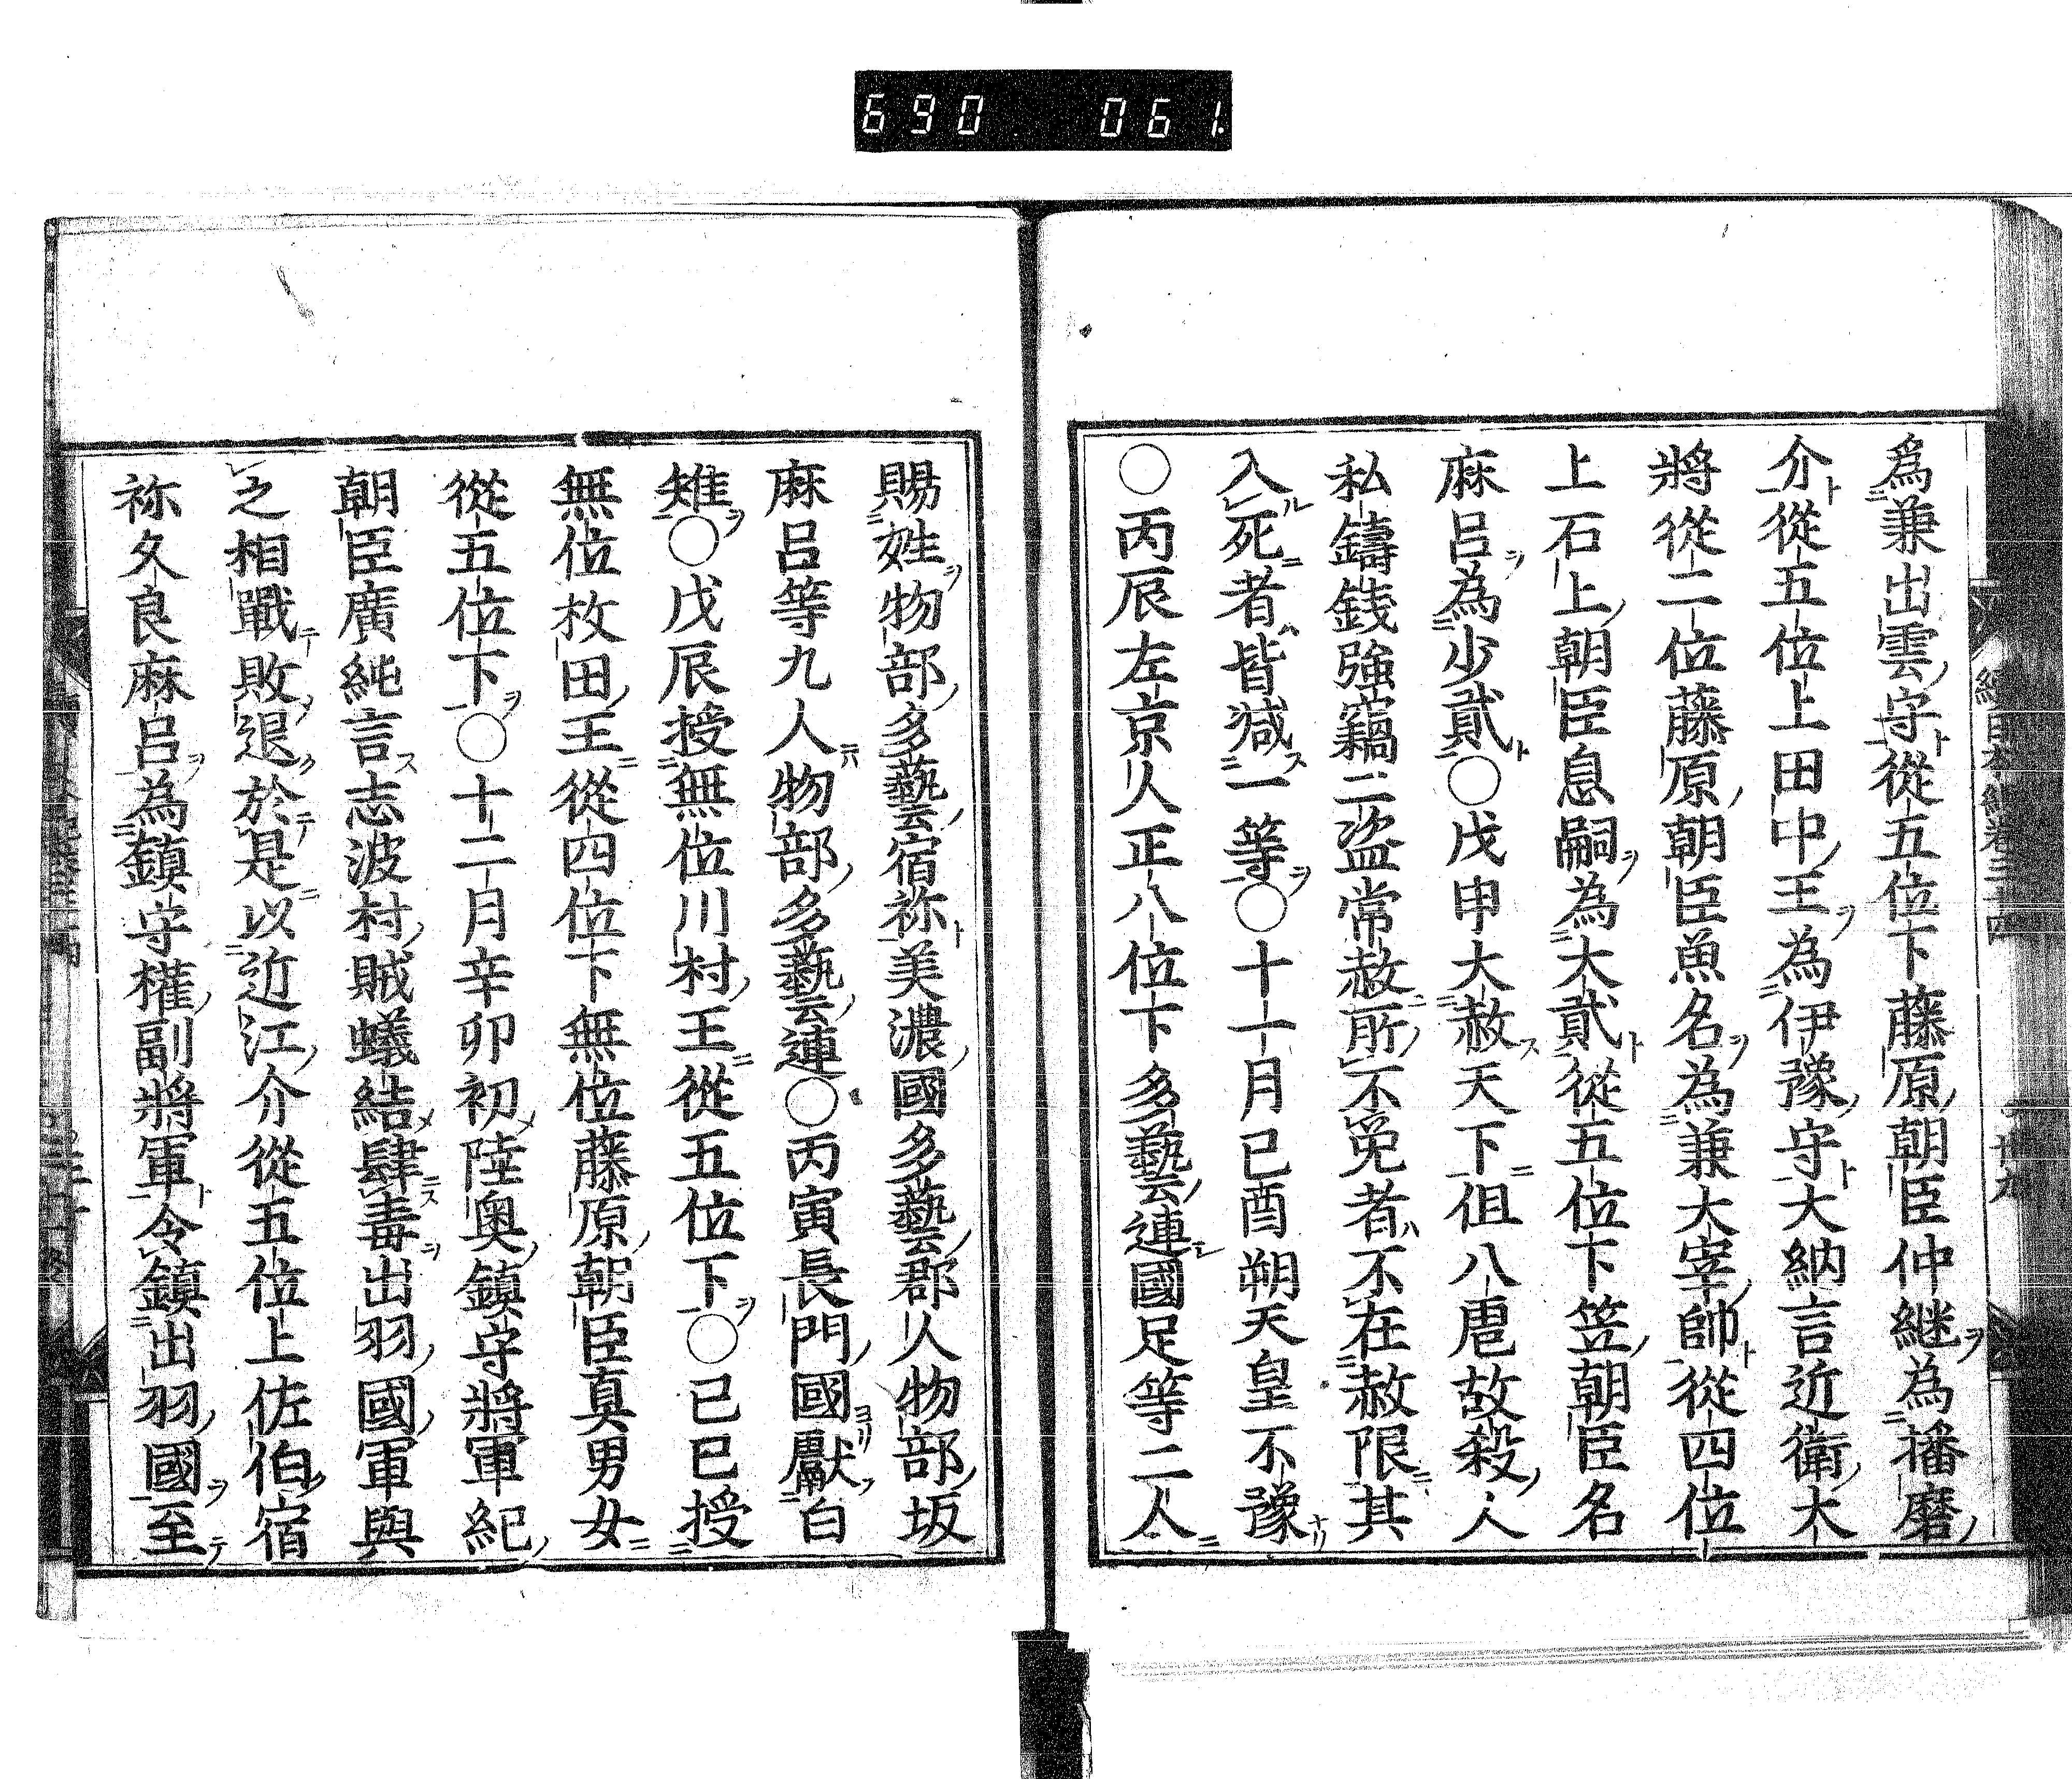 690 061
爲兼出雲守從五位下藤原朝臣仲継為播磨
介從五位上田中王為伊豫守大納言近衛大
將從二位藤原朝臣魚名為兼大宰帥從四位
上石上朝臣息嗣為大貳從五位下笠朝臣名
麻呂為少貳○戊申大赦天下但八虐故殺人
私鑄錢強竊二盗常赦所不免者不在赦限其
入死者皆减一等○十一月己酉朔天皇不豫
○丙辰左京人正八位下多藝連國足等二人
賜姓物部多藝宿祢美濃國多藝郡人物部坂
麻呂等九人物部多藝連○丙寅長門國獻白
雉○戊辰授無位川村王從五位下○己巳授
無位枚田王從四位下無位藤原朝臣真男女
從五位下○十二月辛卯初陸奥鎮守將軍紀
朝臣廣純言志波村賊蟻結肆毒出羽國軍與
之相戰敗退於是以近江介從五位上佐伯宿
祢久良麻呂為鎮守權副將軍令鎮出羽國至